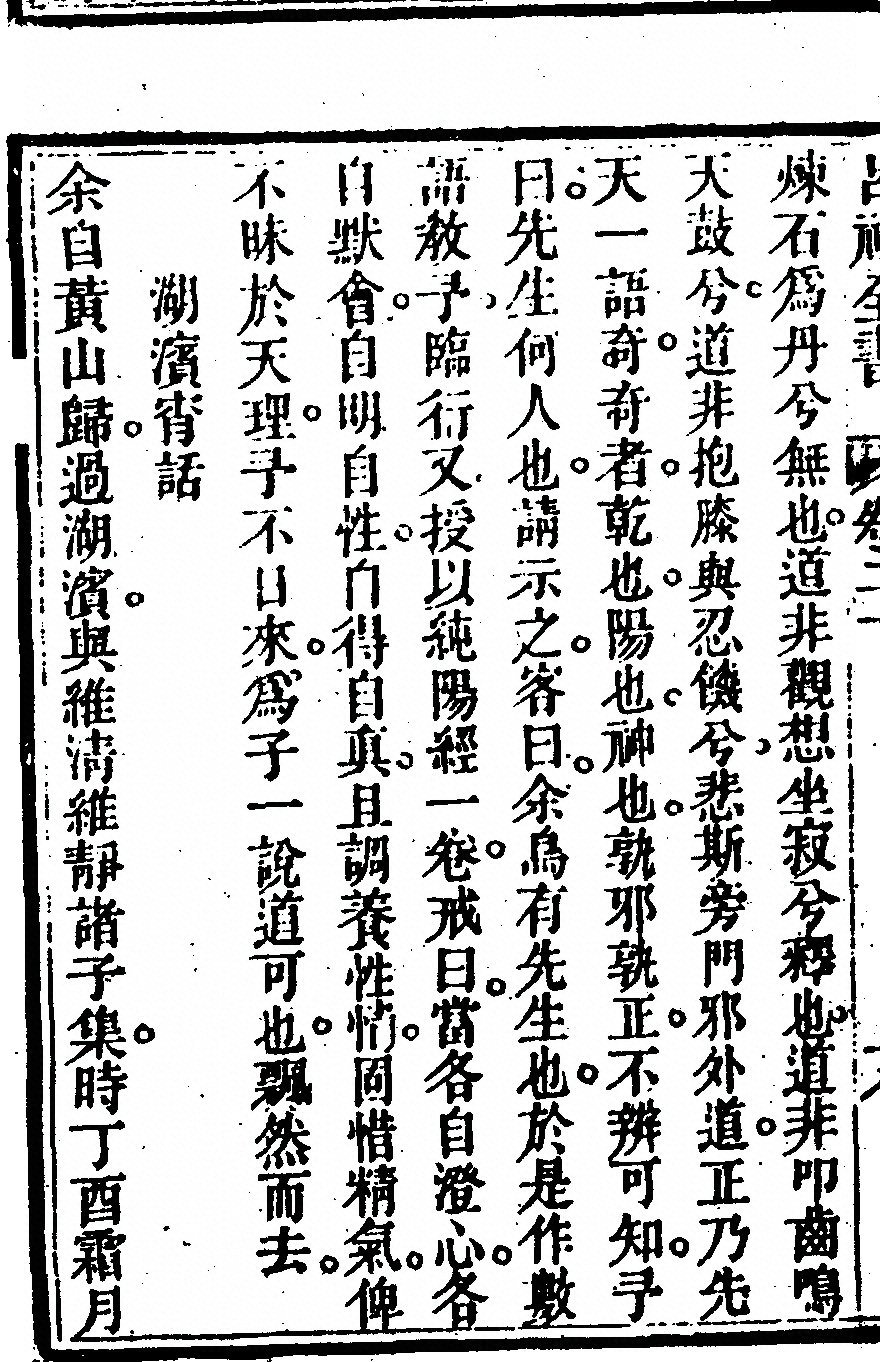 呂祖全書 卷二 六
煉石爲丹兮無也道非觀想坐寂兮釋也道非叩齒鳴
天鼓兮道非抱膝與忍饑兮悲斯旁門邪外道正乃先
天一語奇奇者乾也陽也神也孰邪孰正不辨可知予
曰先生何人也請示之客曰余烏有先生也於是作數
語教予臨行又授以純陽經一卷戒曰當各自澄心各
自默會自明自性自得自真且調養性情固惜精氣俾
不昧於天理予不日來爲子一說道可也飄然而去
湖濱宵話
余自黃山歸過湖濱與維清維靜諸子集時丁酉霜月